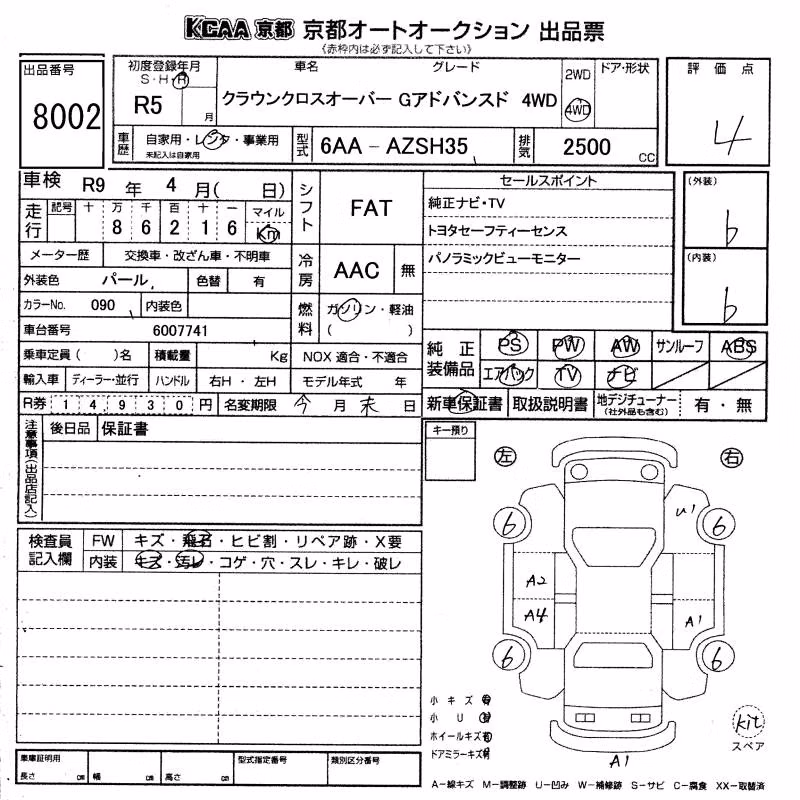 KCAA 京都 京都オートオークション 出品票
《赤枠内は必ず記入して下さい》
出品番号
8002
初度登録年月
S・H・R
R5 月
車名 グレード
クラウンクロスオーバー Gアドバンスド 4WD
2WD
4WD
ドア・形状
評価点
4
車歴 自家用・レンタ・事業用
未記入は自家用
型式 6AA － AZSH35
排気 2500 CC
車検 R9 年 4 月( 日)
走行 記号 十 万 千 百 十 一 マイル
8 6 2 1 6 Km
シフト FAT
セールスポイント
純正ナビ・TV
トヨタセーフティーセンス
パノラミックビューモニター
(外装)
6
(内装)
6
メーター歴 交換車・改ざん車・不明車
冷房 AAC 無
外装色 パール 色替 有
カラーNo. 090 内装色
燃料 ガソリン・軽油
( )
車台番号 6007741
乗車定員( )名 積載量 Kg NOX 適合・不適合
輸入車 ディーラー・並行 ハンドル 右H・左H モデル年式 年
純正装備品 PS PW AW サンルーフ ABS
エアバック TV ナビ
R券 14930 円 名変期限 今 月 末 日
新車保証書 取扱説明書 地デジチューナー(社外品も含む) 有・無
注意事項(出品店記入)
後日品 保証書
キー預り
左 右
検査員記入欄
FW キズ・飛石・ヒビ割・リペア跡・X要
内装 キズ・汚レ・コゲ・穴・スレ・キレ・破レ
U1
6 6
A2
A4 A1
6 6
小キズ 有
小U 有
ホイールキズ 有
ドアミラーキズ 有
A1
kit
スペア
車庫証明用
長さ cm 幅 cm 高さ cm
型式指定番号 類別区分番号
A－線キズ M－調整跡 U－凹み W－補修跡 S－サビ C－腐食 XX－取替済